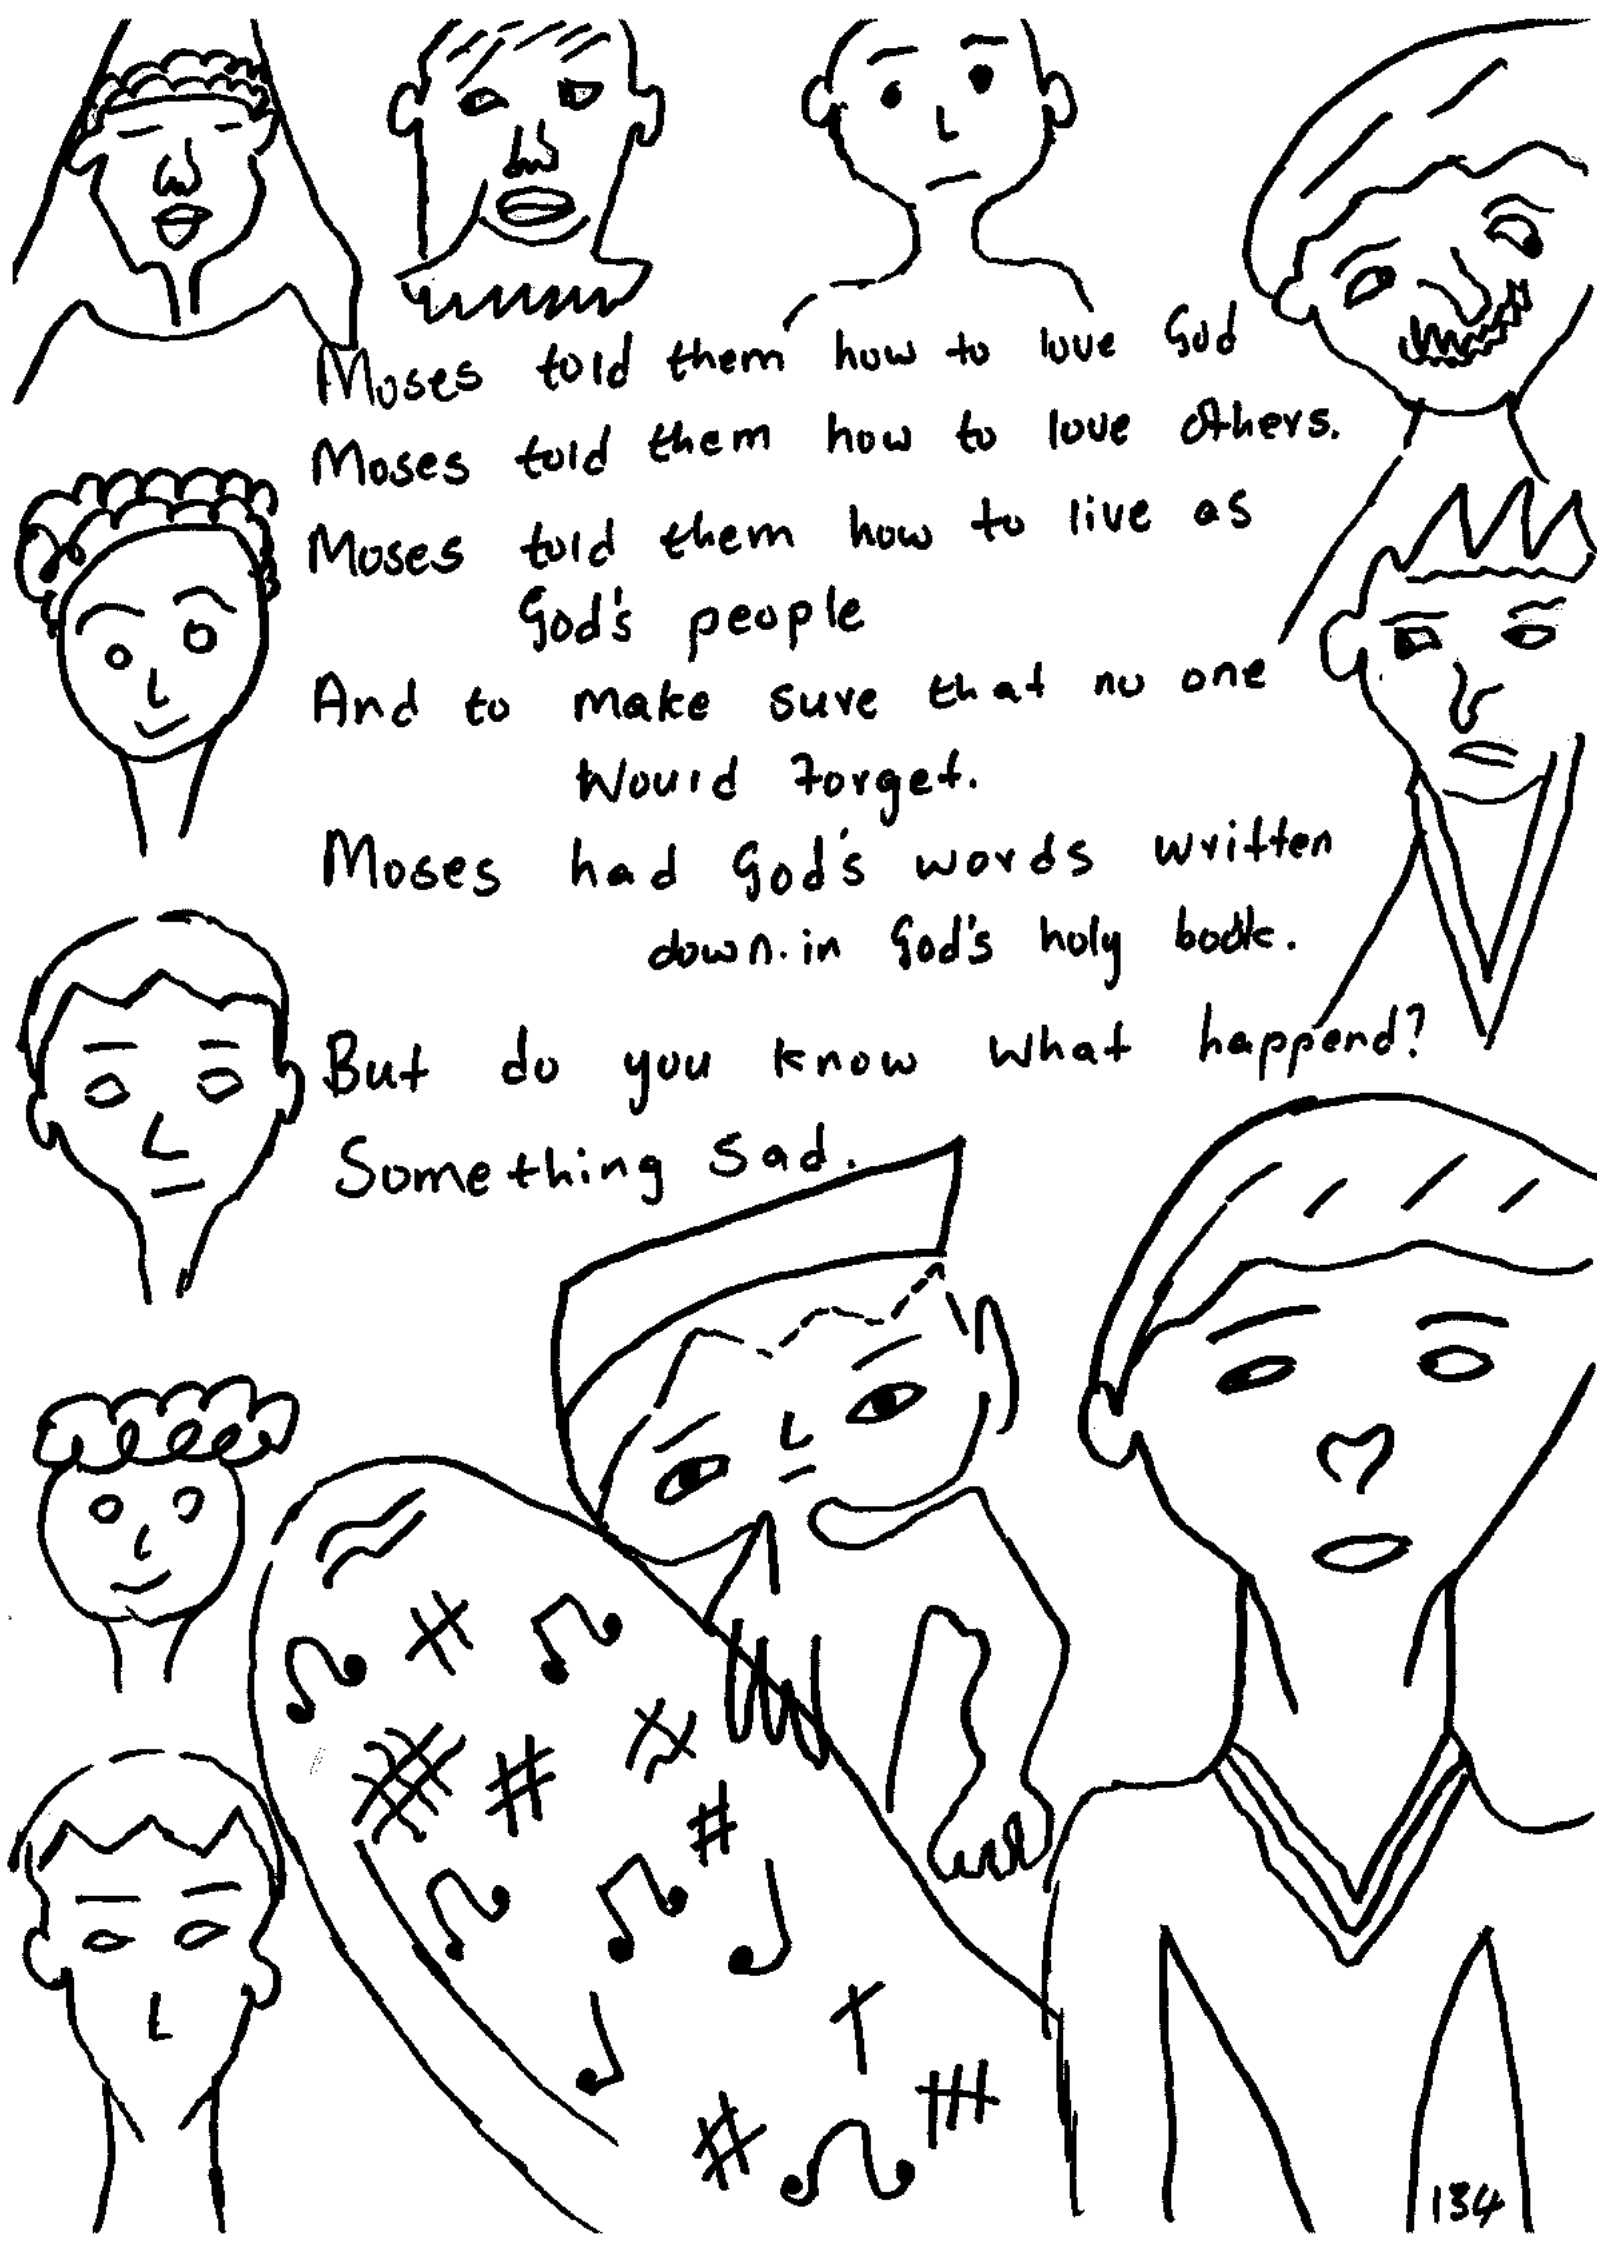 Moses told them how to love God
Moses told them how to love others.
Moses told them how to live as
God's people
And to make sure that no one
Would forget.
Moses had God's words written
down. in God's holy book.
But do you know what happend?
Something sad.
134